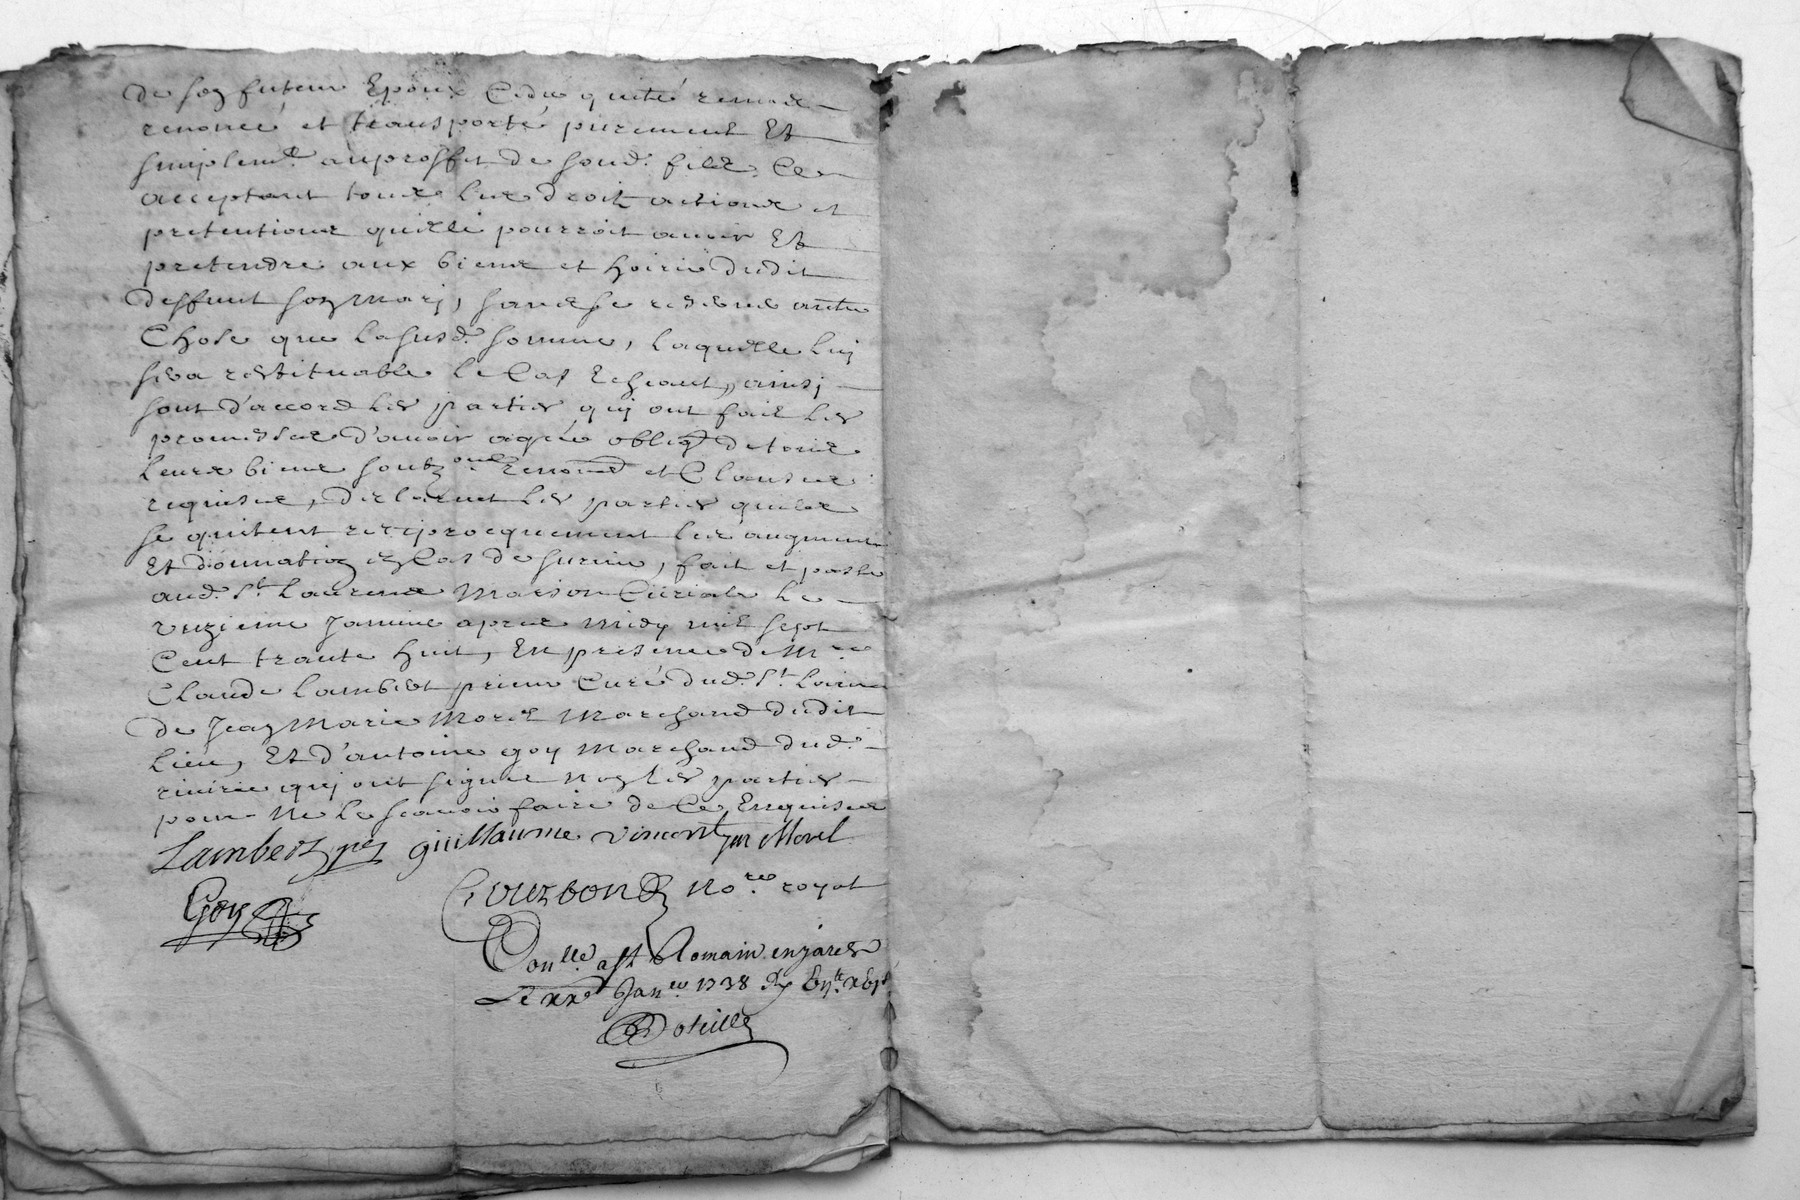 de son futeur Epoux Cede quitté remis
renoncé et transporté purement Et
simplemt. au proffit de soud. filz, Ce
acceptant tous les droitz actions et
pretentions quelle pourroit avoir Et
pretendre aux biens et hoirie dudit
deffunt son mary, sans se reserve autre
Chose que lasusd. somme, laquelle luy
sera restituable le Cas Echeant, ainsi
sont d'accord les parties quj ont fait les
promesses d'avoir agréé obligon de tous
leurs biens soubz renons et Clauses
requises, declarent les parties quelles
se quitent reciprocquement les augments
Et donnation en Cas de survie, fait et passé
aud. St. Laurens Maison Curiale le
unzieme Janvier apres midy mil sept
Cent trante huit, En presence de Mre
Claude Lambert prieur Curé dud. St. Laurens
de Jean Marie Morel Marchand dudit
lieu, Et d'antoine goy Marchand dud.
quj ont signé non les parties
pour ne le scavoir faire de Ce Enquises
Lambert pr guillaume vincent jm Morel
Goy
Gourbon Nore royal
Conlle. a St Romain en jarest
Le xxe Janer 1738
Doteille